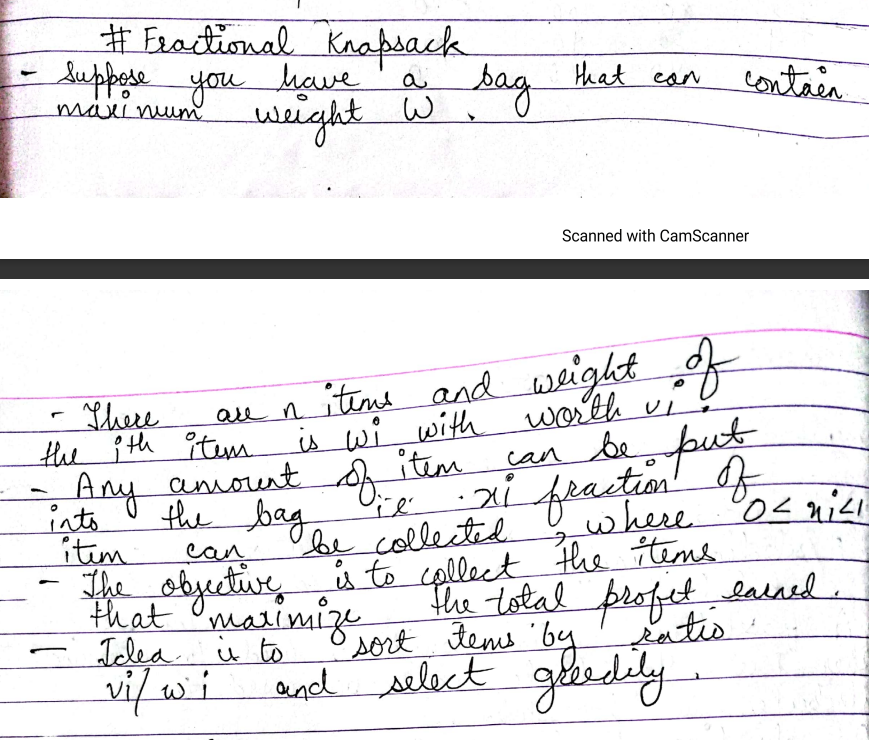 # Fractional Knapsack
- Suppose you have a bag that can contain
maximum weight W.
Scanned with CamScanner
- There are n items and weight of
the ith item is wi with worth vi.
- Any amount of item can be put
into the bag i.e. xi fraction of
item can be collected, where 0≤xi≤1
- The objective is to collect the items
that maximize the total profit earned.
- Idea is to sort items by ratio
vi/wi and select greedily.